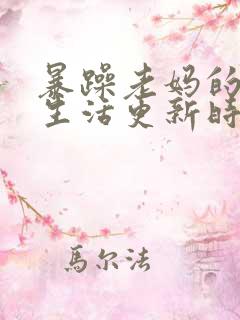 暴躁老妈的
生活更新时
馬尔法